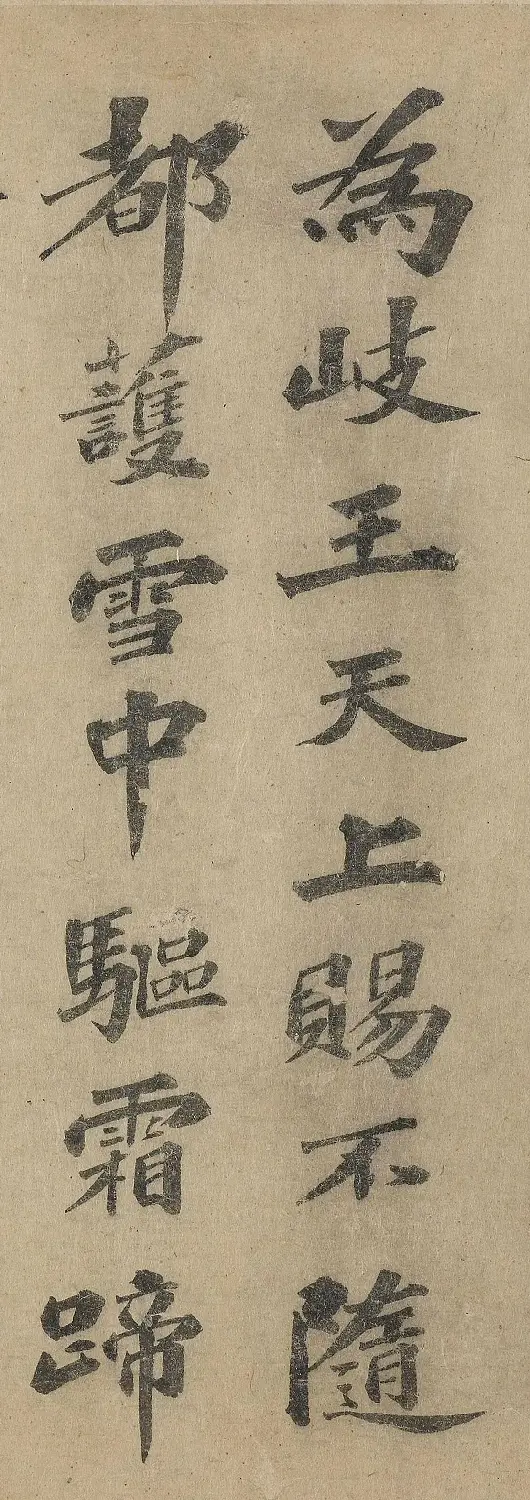 為岐王天上賜不隨
都護雪中驅霜蹄